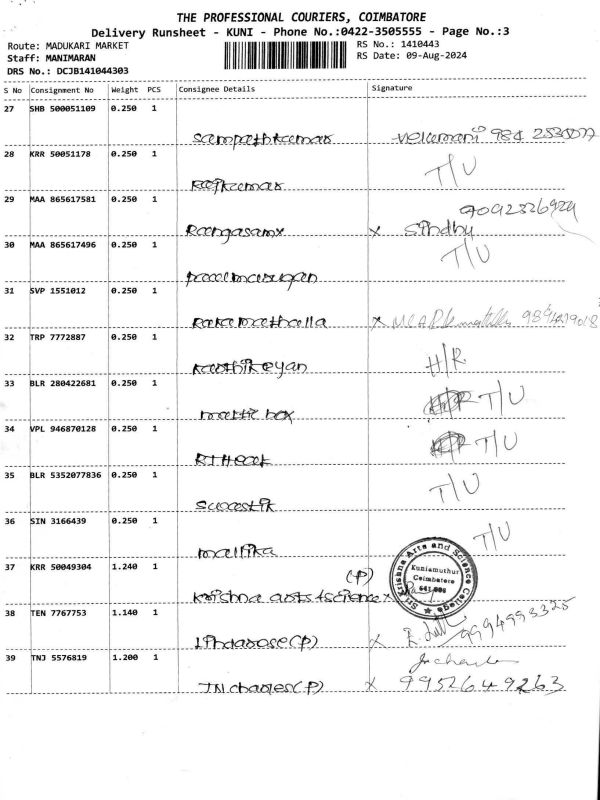 THE PROFESSIONAL COURIERS, COIMBATORE
Delivery Runsheet - KUNI - Phone No.:0422-3505555 - Page No.:3
Route: MADUKARI MARKET
Staff: MANIMARAN
DRS No.: DCJB141044303
RS No.: 1410443
RS Date: 09-Aug-2024
S No Consignment No Weight PCS Consignee Details Signature
27 SHB 500051109 0.250 1
Sampathkumar
28 KRR 50051178 0.250 1
Rajkumar T/U
29 MAA 865617581 0.250 1
9092326929
Rangasamy x Sindhu
30 MAA 865617496 0.250 1
T/U
31 SVP 1551012 0.250 1
x
32 TRP 7772887 0.250 1
Karthikeyan H/R
33 BLR 280422681 0.250 1
T/U
34 VPL 946870128 0.250 1
T/U
35 BLR 5352077836 0.250 1
Swastik T/U
36 SIN 3166439 0.250 1
Mallika T/U
37 KRR 50049304 1.240 1
(P)
Krishna arts & science x
Sri Krishna Arts and Science College
Kuniamuthur
Coimbatore
641 008
38 TEN 7767753 1.140 1
(P) x 9994993325
39 TNJ 5576819 1.200 1
JN charles (P) x 9952649263